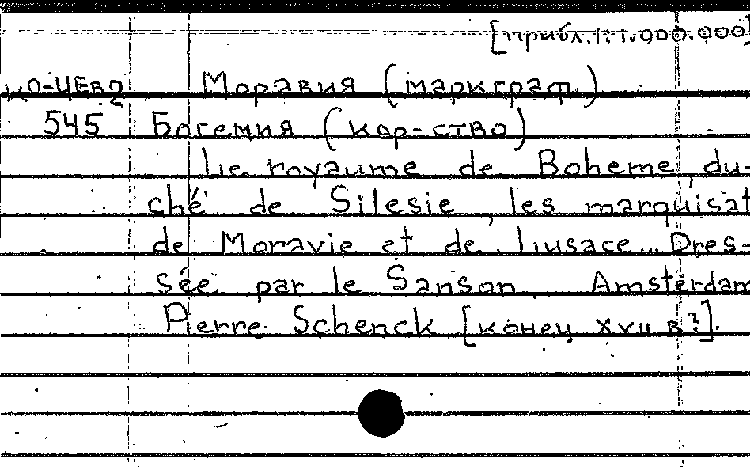 [прибл. 1:1.000.000]
Ко-Чев2 Моравия (маркграф.)
545 Богемия (кор-ство)
Le royaume de Boheme, du-
ché de Silesie, les marquisat
de Moravie et de Lusace. Dres-
sée par le Sanson. Amsterdam
Pierre Schenck [конец XVII в?].